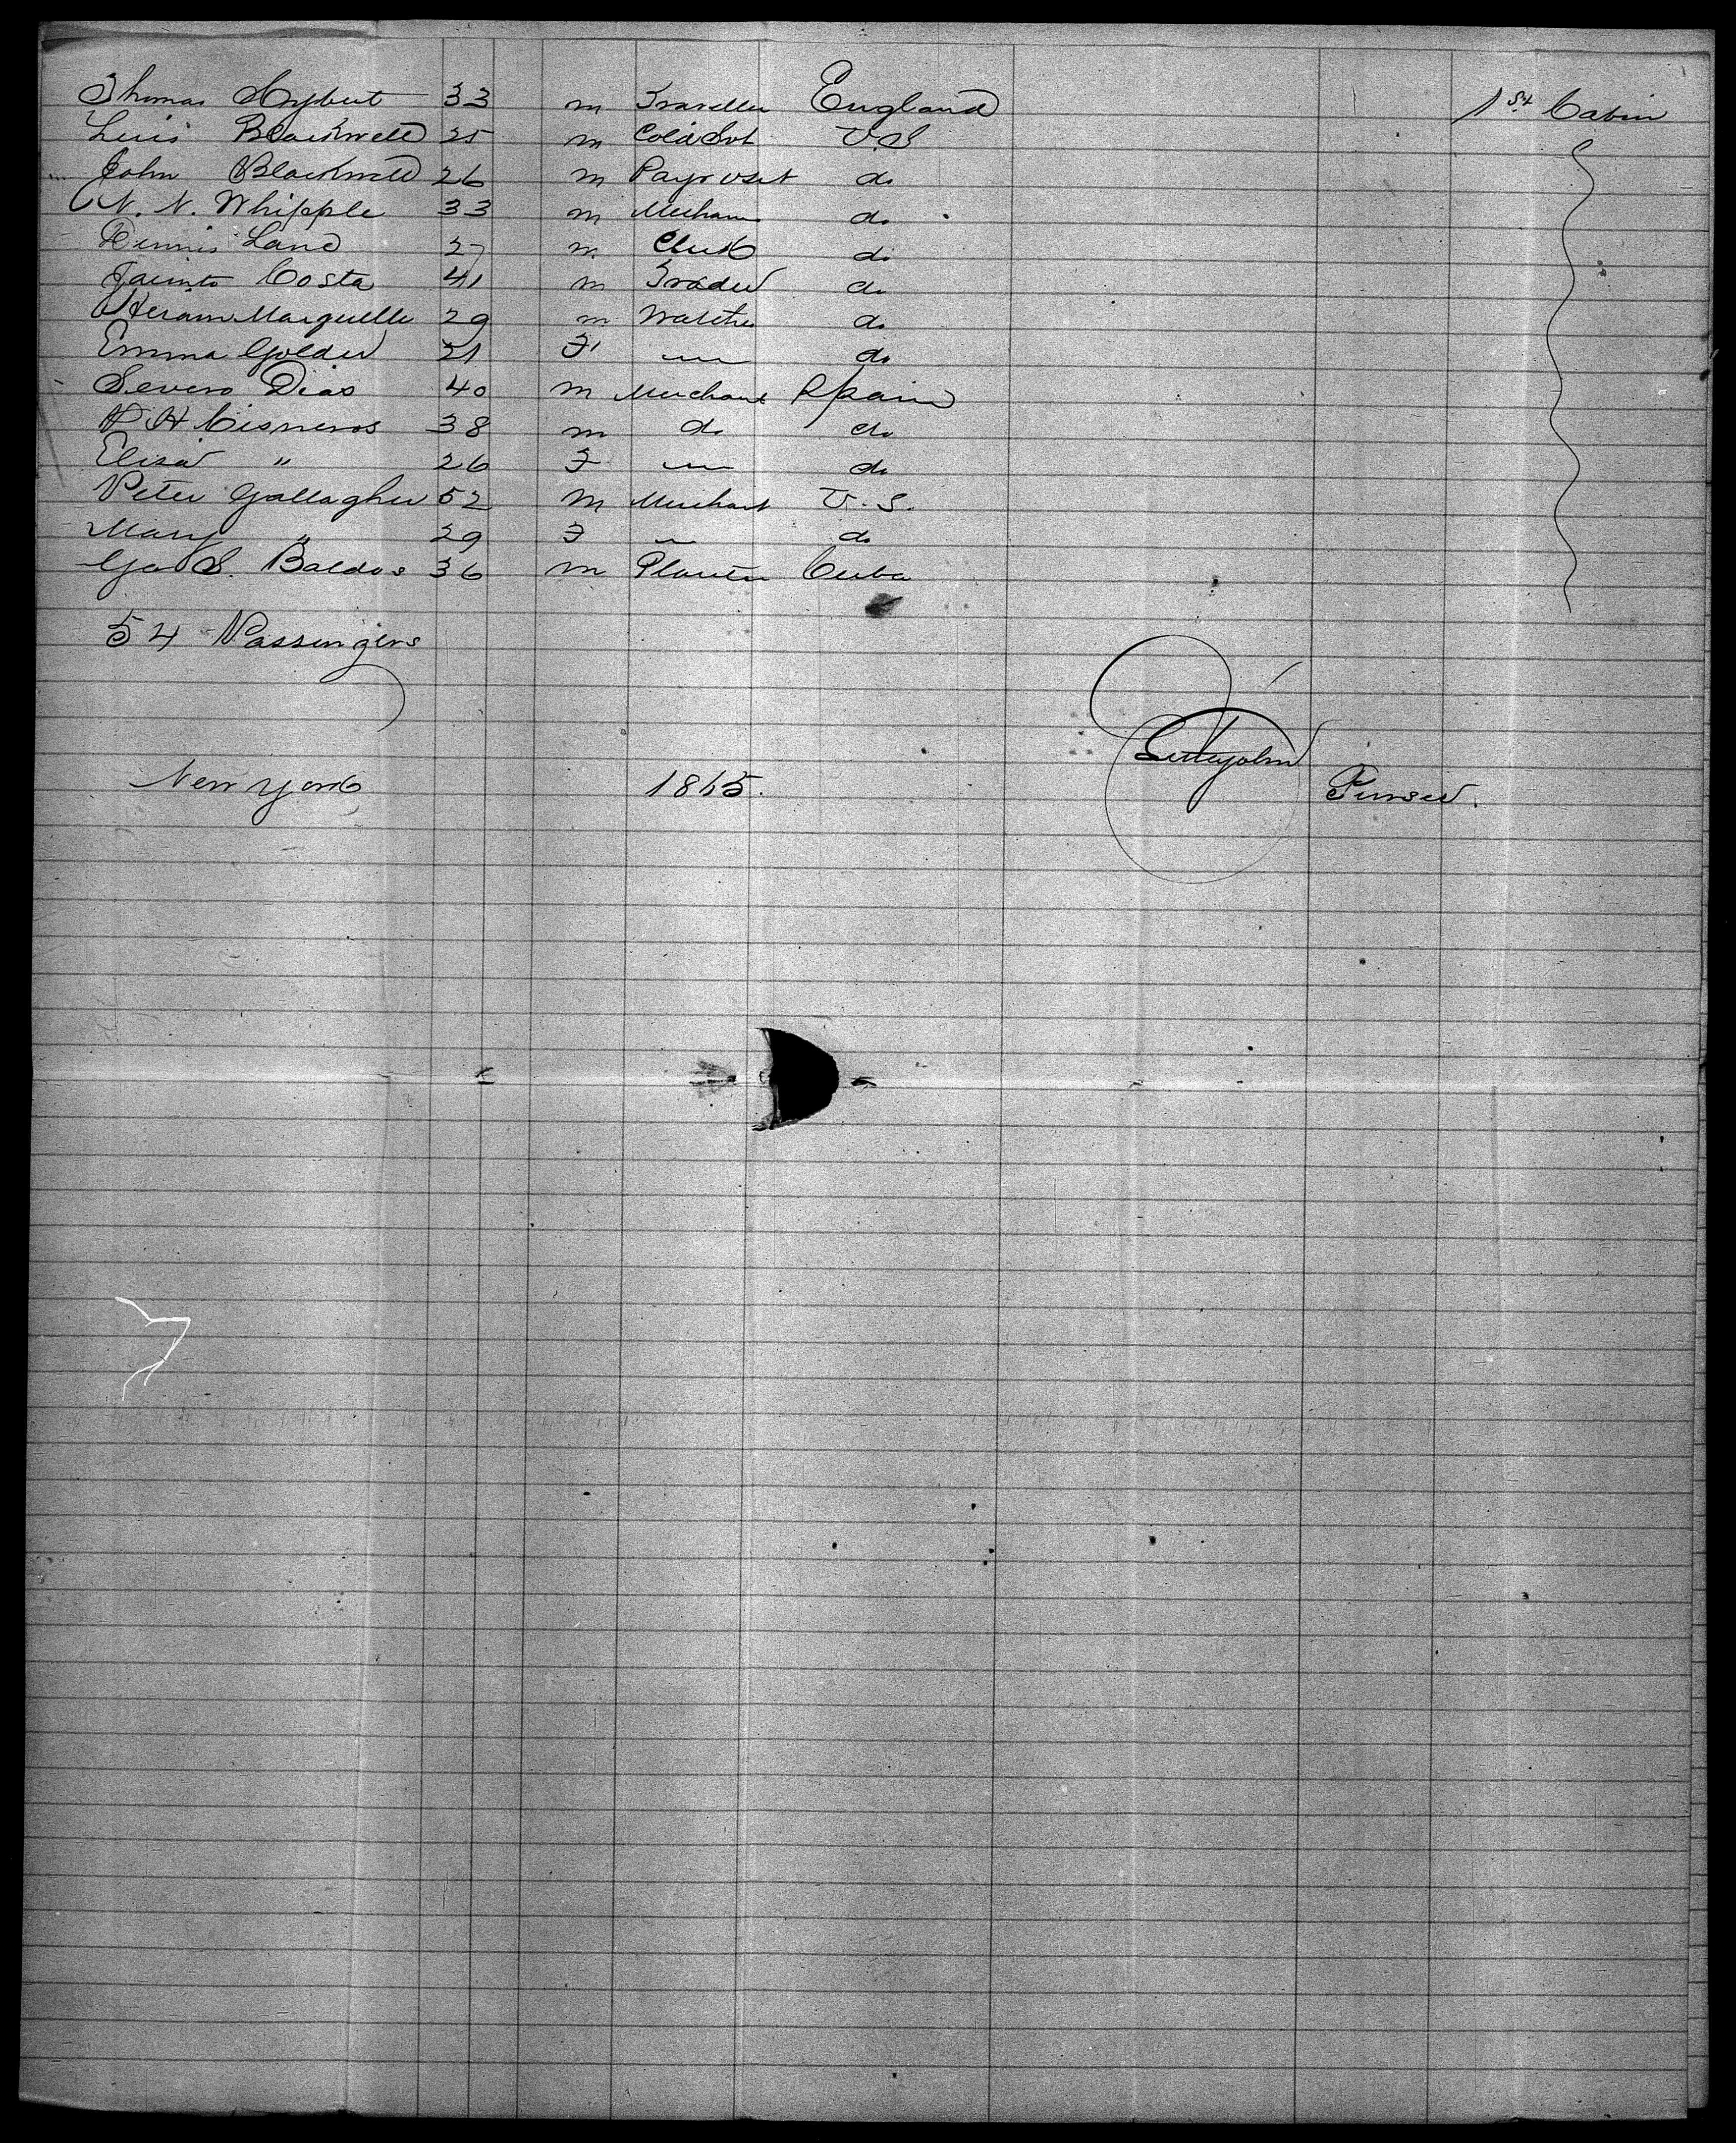 Thomas 33 m Traveller England 1st Cabin
Luis Blackwell 25 m U.S
John Blackwell 26 m do
N. N. Whipple 33 m do
Dennis Land 27 m Clerk do
Jacinto Costa 41 m Trader do
Hiram 29 m do
Emma Golder 21 F " do
Severo Dias 40 m Merchant Spain
H Cisneros 38 m do do
Eliza " 26 F " do
Peter Gallagher 52 m Merchant U.S.
Mary " 29 F " do
Geo S. Baldos 36 m Planter Cuba
54 Passengers
Littlejohn
New York 1865. Purser.